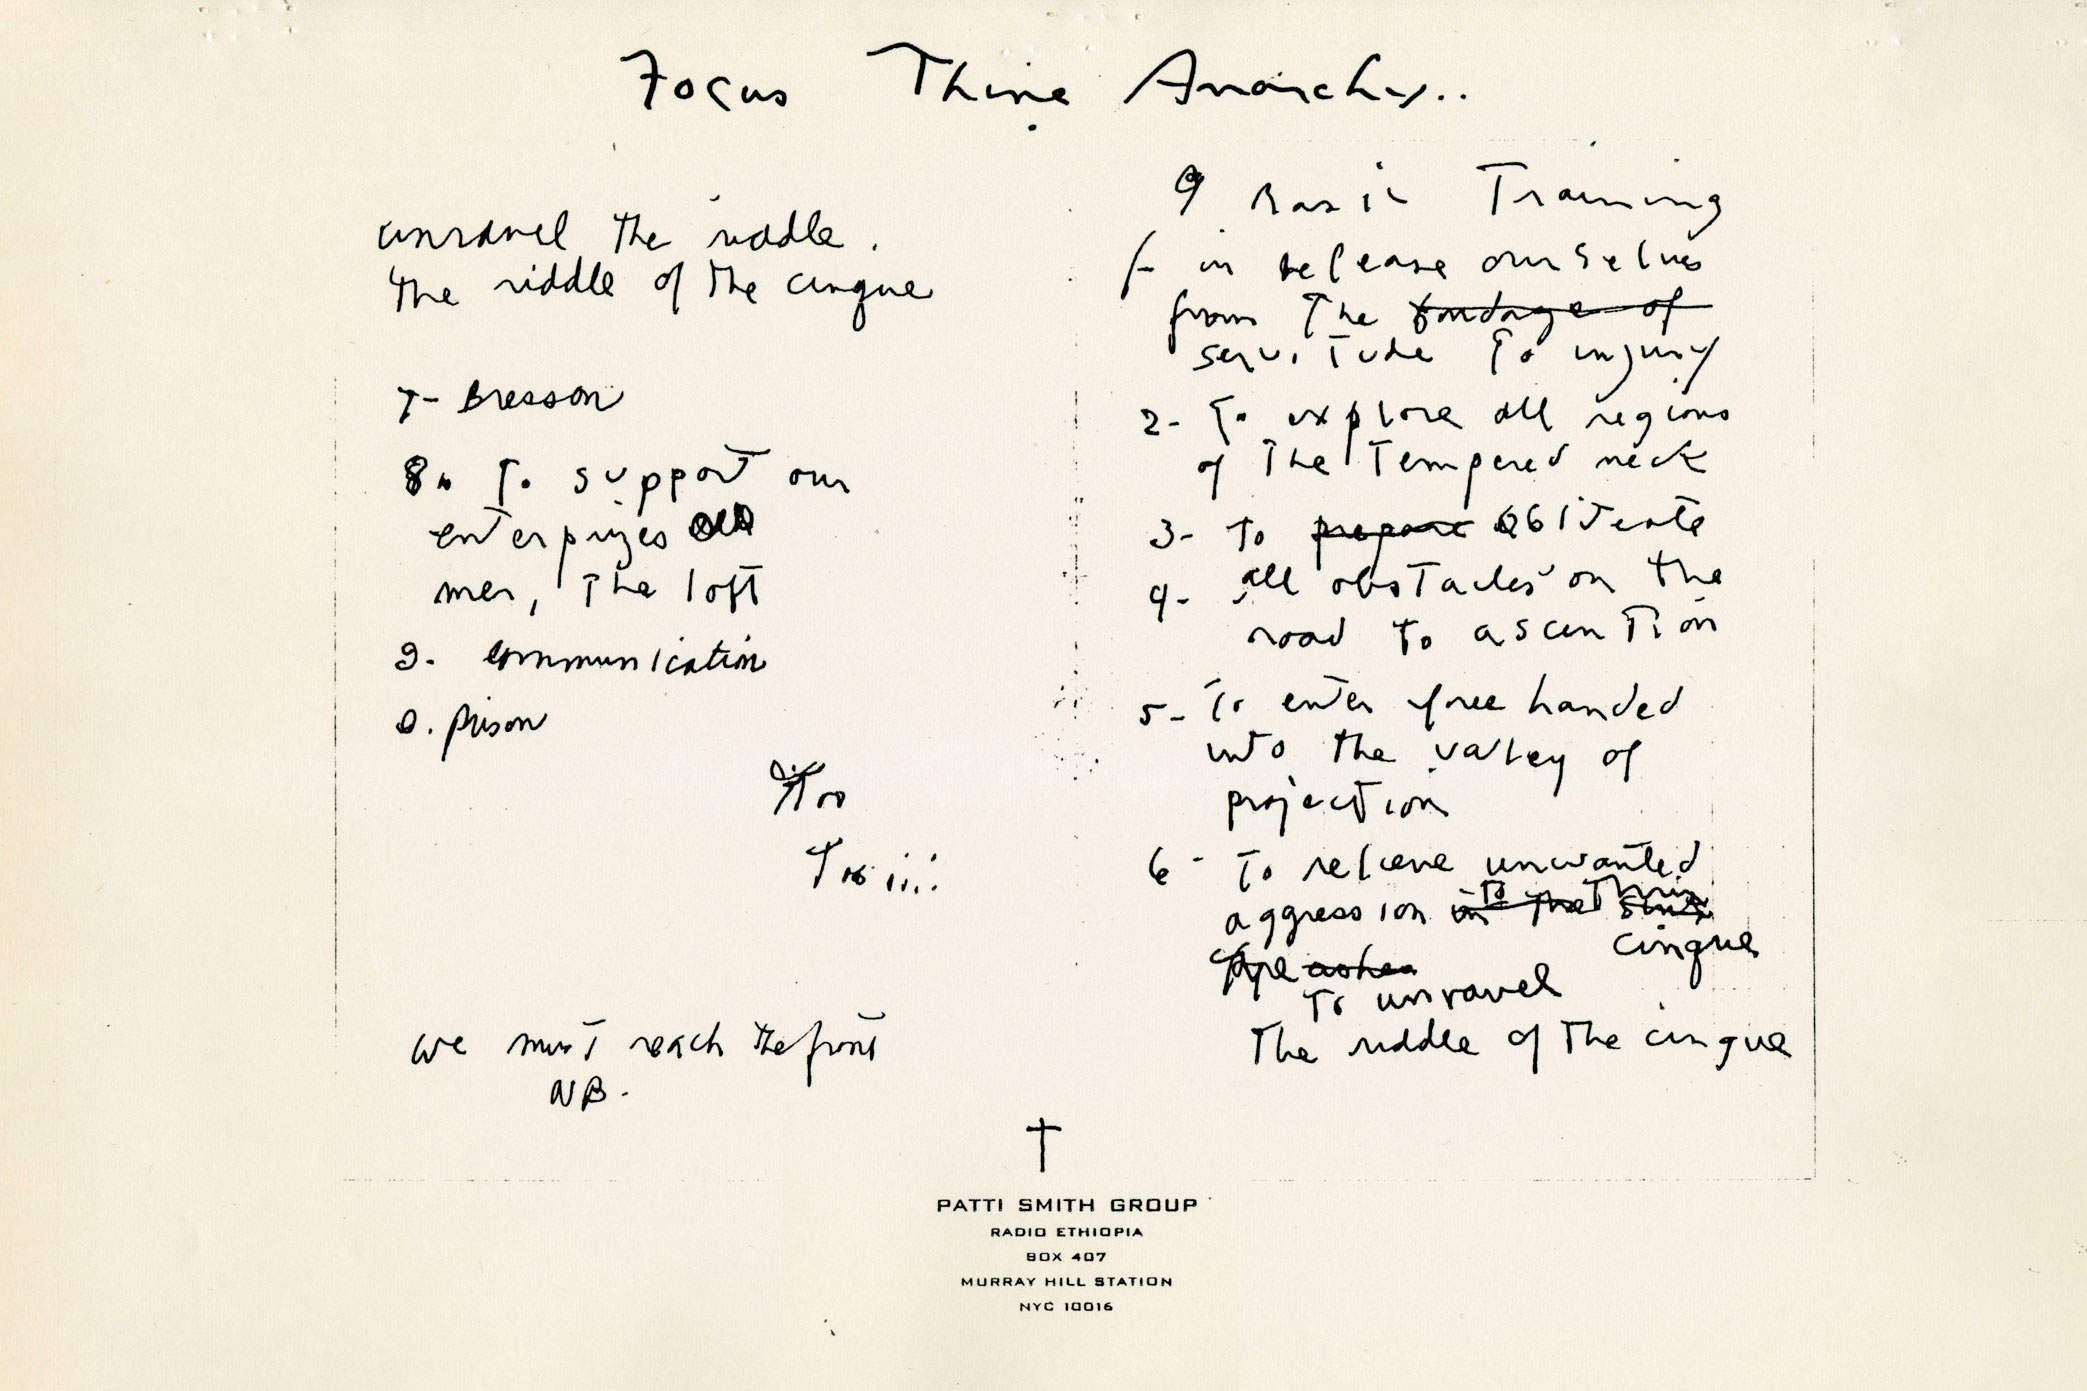 Focus Thine Anarchy..
unravel the riddle.
the riddle of the cinque
7- Bresson
8. To support our
enterprizes
mer, The loft
9. communication
0. prison
Too
we must reach the front
NB.
9 Basic Training
1- in release ourselves
from The bondage of
servitude To injury
2- To explore all regions
of The Tempered neck
3- To prepare obliterate
4- all obstacles on the
road To ascention
5- To enter free handed
into the valley of
projection
6- To relieve unwanted
aggression in the
cinque
ashes
To unravel
The riddle of The cinque
PATTI SMITH GROUP
RADIO ETHIOPIA
BOX 407
MURRAY HILL STATION
NYC 10016